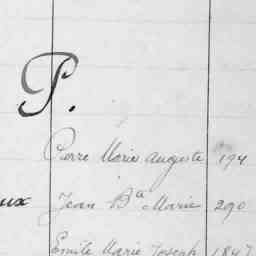 P.
Pierre Marie Auguste 194
ux Jean Bᵃ Marie 290
Emile Marie Joseph 1847